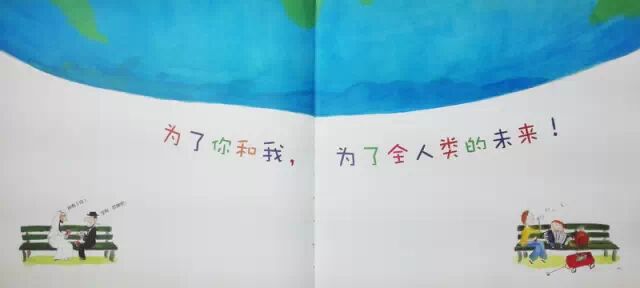 为了你和我，为了全人类的未来！